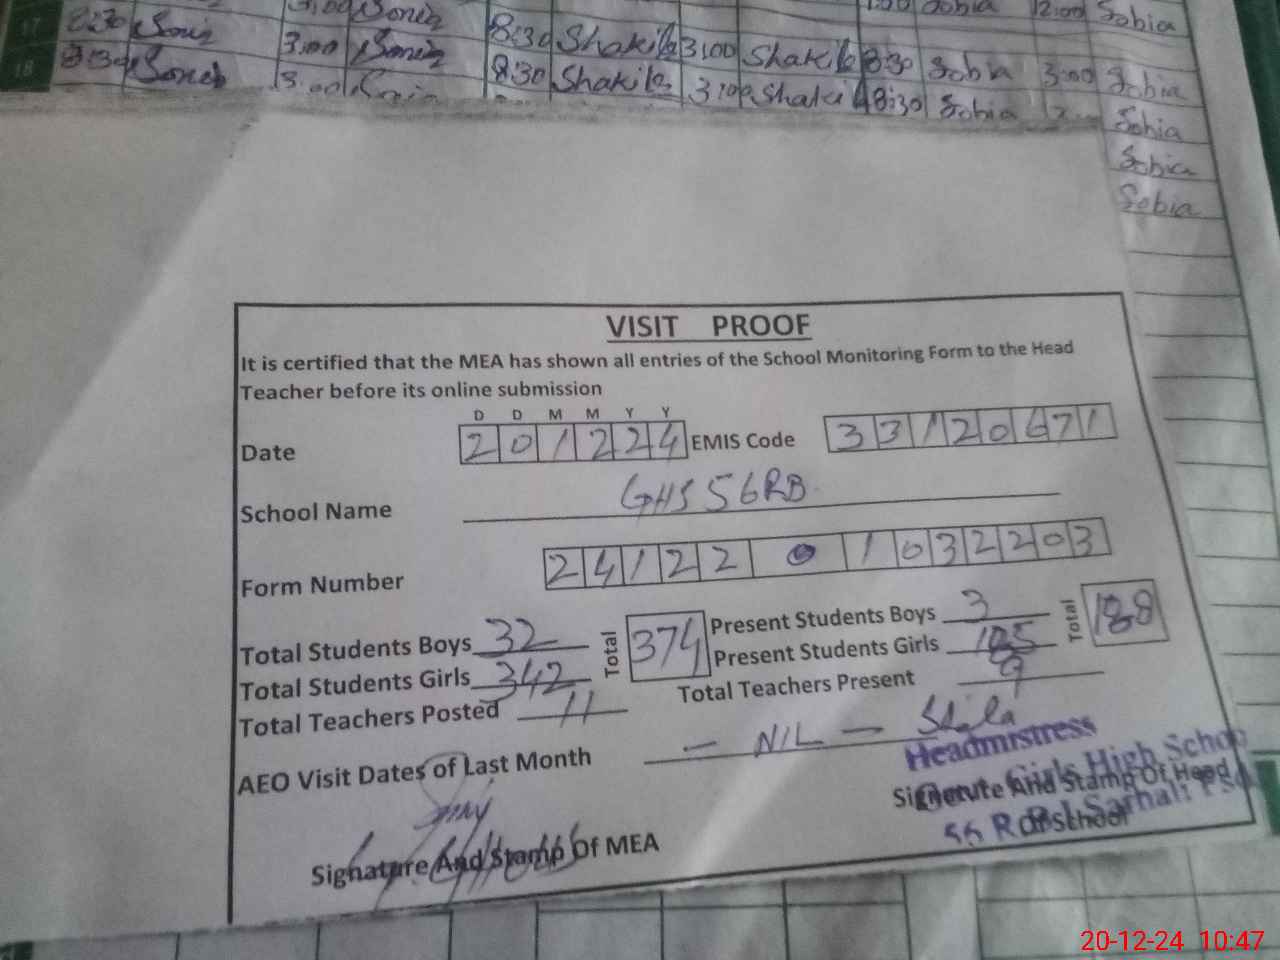 3:00 Sonia 1:30 Sobia 12:00 Sobia
17 8:30 Sonia 3:00 Sonia 8:30 Shakila 3:00 Shakila 8:30 Sobia 3:00 Sobia
18 8:30 Sonia 3:00 8:30 Shakila 3:00 Shakila 8:30 Sobia Sobia
Sobia
Sobia
VISIT PROOF
It is certified that the MEA has shown all entries of the School Monitoring Form to the Head
Teacher before its online submission
D D M M Y Y
Date 201224 EMIS Code 33120671
School Name GHS 56RB
Form Number 24122 0 1032203
Total Students Boys 32 Total 374 Present Students Boys 3 Total 188
Total Students Girls 342 Present Students Girls 185
Total Teachers Posted 11 Total Teachers Present 9
AEO Visit Dates of Last Month — NIL —
Headmistress
Signature And Stamp Of Head
Girls High School
Of School
56 R.B. Sarhali
Signature And Stamp Of MEA
20-12-24 10:47